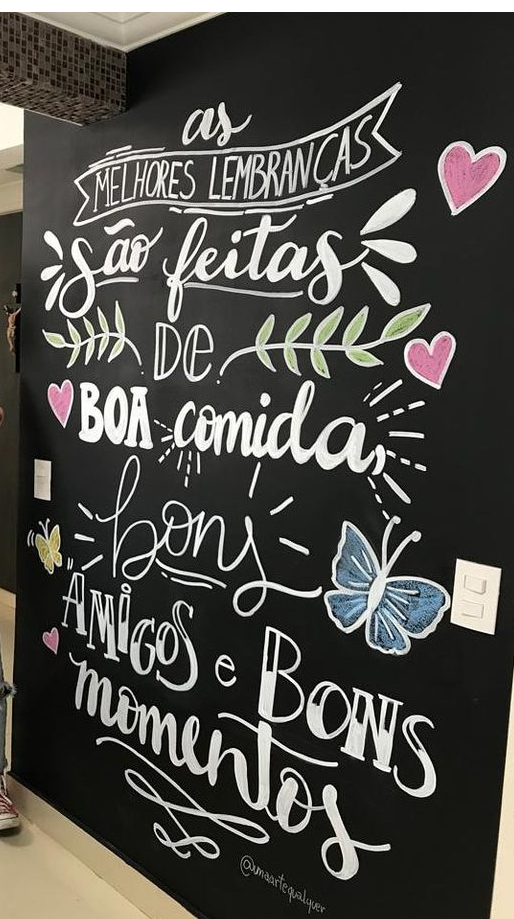 as
MELHORES LEMBRANÇAS
são feitas
DE
BOA comida,
bons
AMIGOS e BONS
momentos
@umaartequalquer